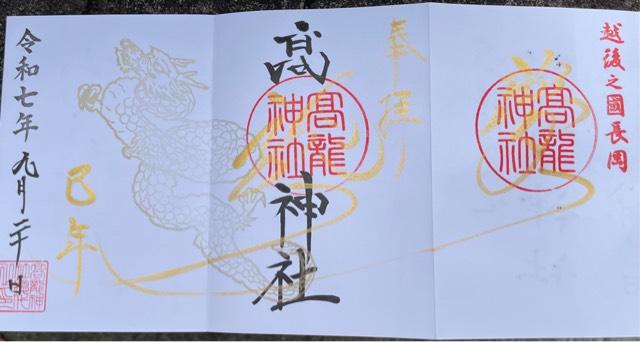 越後之國長岡
髙龍神社
奉拝
髙
神社
髙龍神社
巳年
令和七年九月二十日